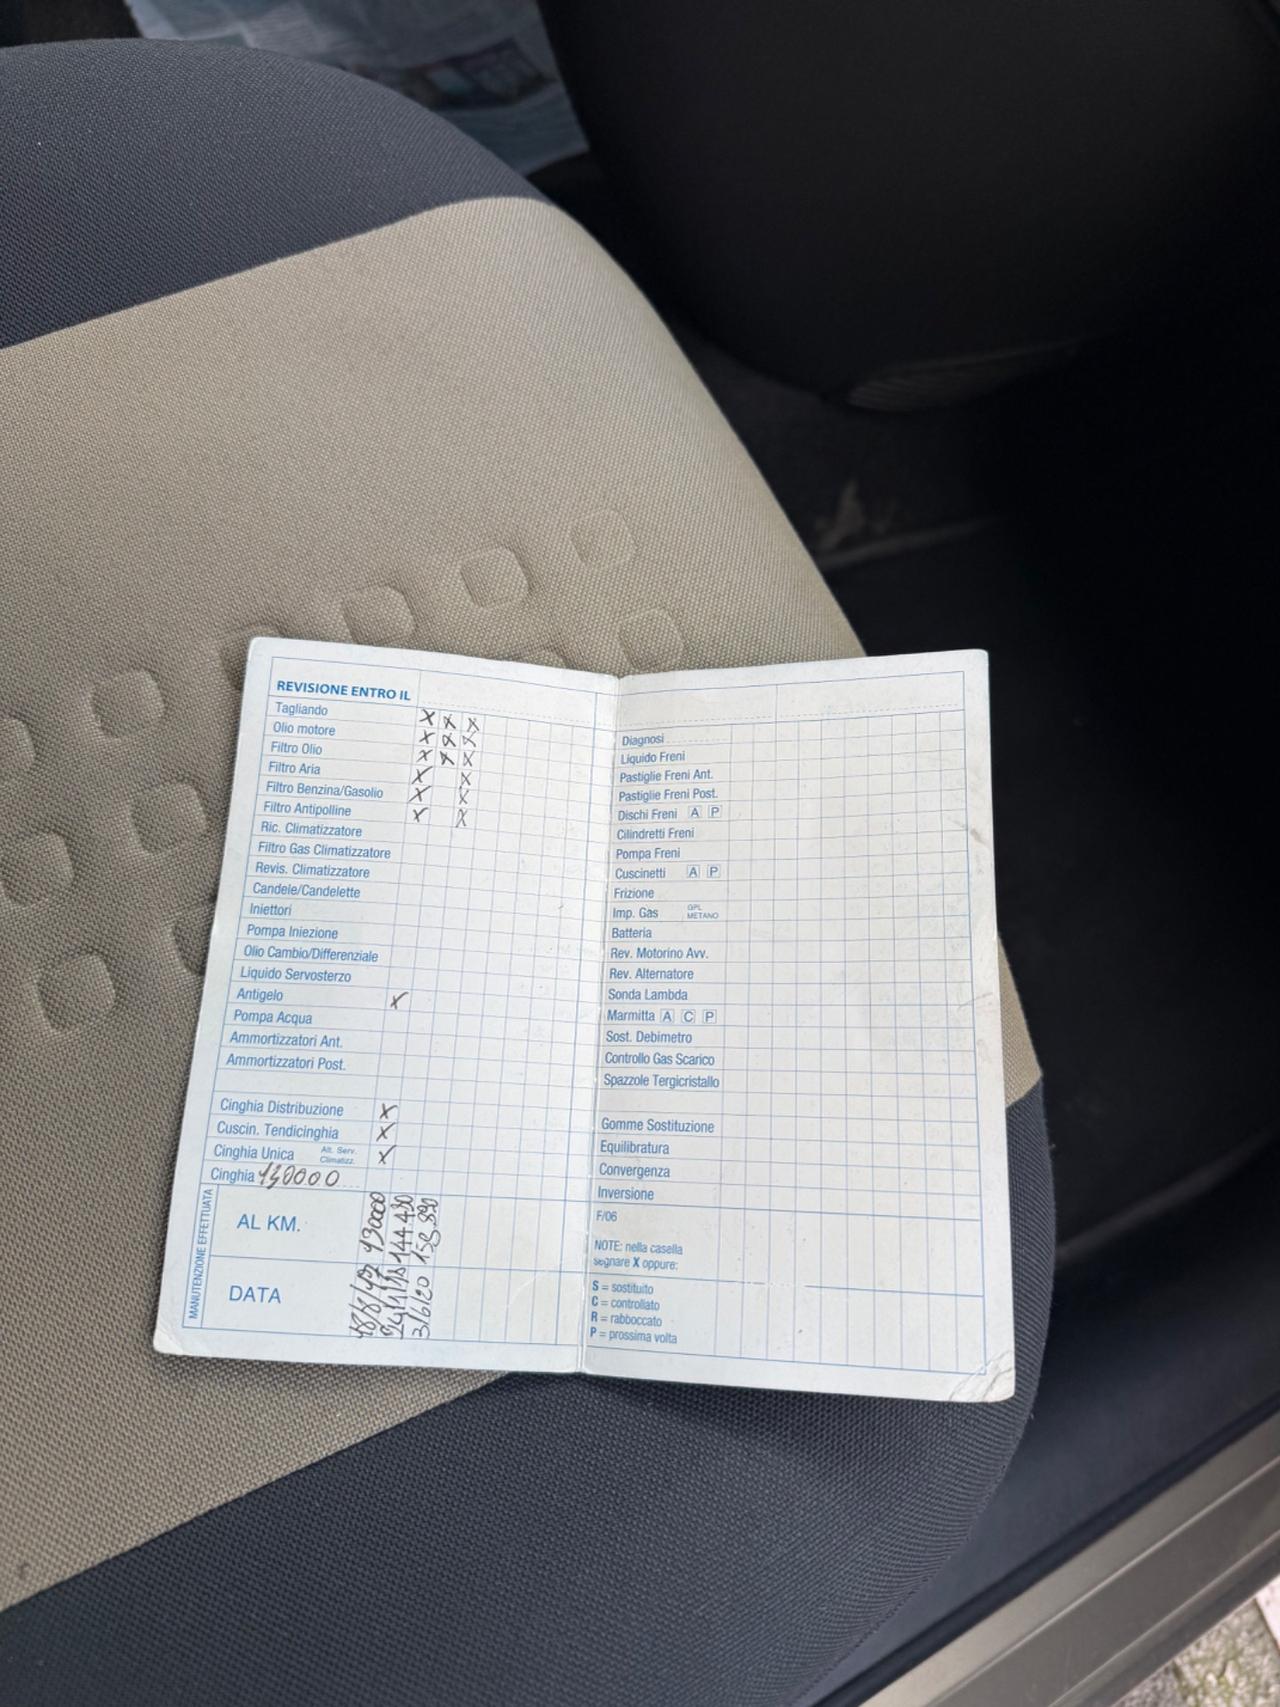 REVISIONE ENTRO IL
Tagliando X X X
Olio motore X X X
Filtro Olio X X X
Filtro Aria X X
Filtro Benzina/Gasolio X X
Filtro Antipolline X X
Ric. Climatizzatore
Filtro Gas Climatizzatore
Revis. Climatizzatore
Candele/Candelette
Iniettori
Pompa Iniezione
Olio Cambio/Differenziale
Liquido Servosterzo
Antigelo X
Pompa Acqua
Ammortizzatori Ant.
Ammortizzatori Post.
Cinghia Distribuzione X
Cuscin. Tendicinghia X
Cinghia Unica Alt. Serv. Climatizz. X
Cinghia
MANUTENZIONE EFFETTUATA
AL KM. 144430
DATA 24/1/18 3/6/20
Diagnosi
Liquido Freni
Pastiglie Freni Ant.
Pastiglie Freni Post.
Dischi Freni A P
Cilindretti Freni
Pompa Freni
Cuscinetti A P
Frizione
Imp. Gas GPL METANO
Batteria
Rev. Motorino Avv.
Rev. Alternatore
Sonda Lambda
Marmitta A C P
Sost. Debimetro
Controllo Gas Scarico
Spazzole Tergicristallo
Gomme Sostituzione
Equilibratura
Convergenza
Inversione
F/06
NOTE: nella casella
segnare X oppure:
S = sostituito
C = controllato
R = rabboccato
P = prossima volta